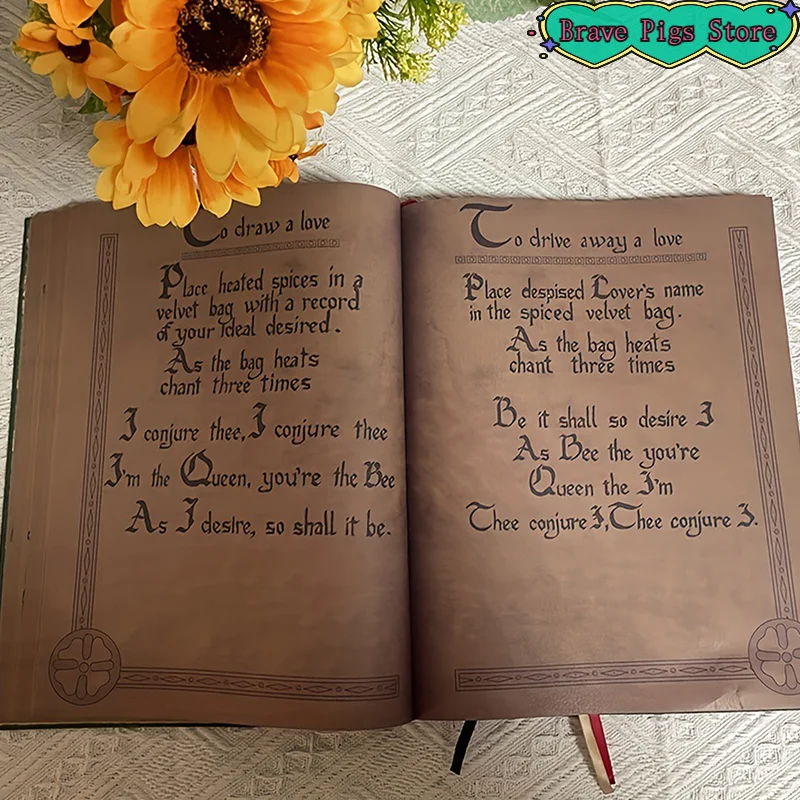 Brave Pigs Store
To draw a love
Place heated spices in a
velvet bag with a record
of your ideal desired.
As the bag heats
chant three times
I conjure thee, I conjure thee
I'm the Queen, you're the Bee
As I desire, so shall it be.
To drive away a love
Place despised Lover's name
in the spiced velvet bag.
As the bag heats
chant three times
Be it shall so desire I
As Bee the you're
Queen the I'm
Thee conjure I, Thee conjure I.